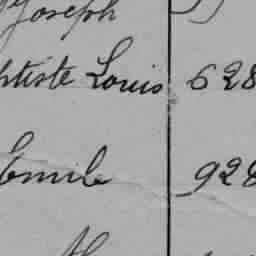 Joseph
ptiste Louis 628
Emile 928